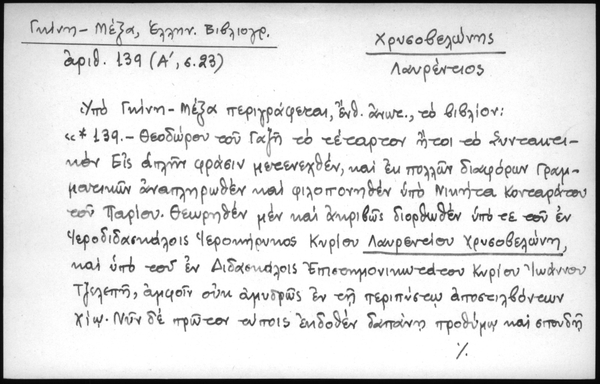 Γκίνη-Μέξα, Ἑλλην. Βιβλιογρ.
ἀριθ. 139 (Α΄, σ. 23)
Χρυσοβελώνης
Λαυρέντιος
Ὑπὸ Γκίνη-Μέξα περιγράφεται, ἔνθ. ἀνωτ., τὸ βιβλίον:
«* 139.- Θεοδώρου τοῦ Γαζῆ τὸ τέταρτον ἤτοι τὸ Συντακτι-
κὸν Εἰς ἁπλῆν φράσιν μετενεχθέν, καὶ ἐκ πολλῶν διαφόρων Γραμ-
ματικῶν ἀναπληρωθὲν καὶ φιλοπονηθὲν ὑπὸ Νικήτα Κονταράτου
τοῦ Παρίου. Θεωρηθὲν μὲν καὶ ἀκριβῶς διορθωθὲν ὑπό τε τοῦ ἐν
Ἱεροδιδασκάλοις Ἱερομήρυκος Κυρίου Λαυρεντίου Χρυσοβελώνη,
καὶ ὑπὸ τοῦ ἐν Διδασκάλοις Ἐπιστημονικωτάτου Κυρίου Ἰωάννου
Τζελεπῆ, ἀμφοῖν οὐκ ἀμυδρῶς ἐν τῇ περιπύστῳ ἀποστιλβόντων
Χίῳ. Νῦν δὲ πρῶτον τύποις ἐκδοθὲν δαπάνῃ προθύμῳ καὶ σπουδῇ
./.